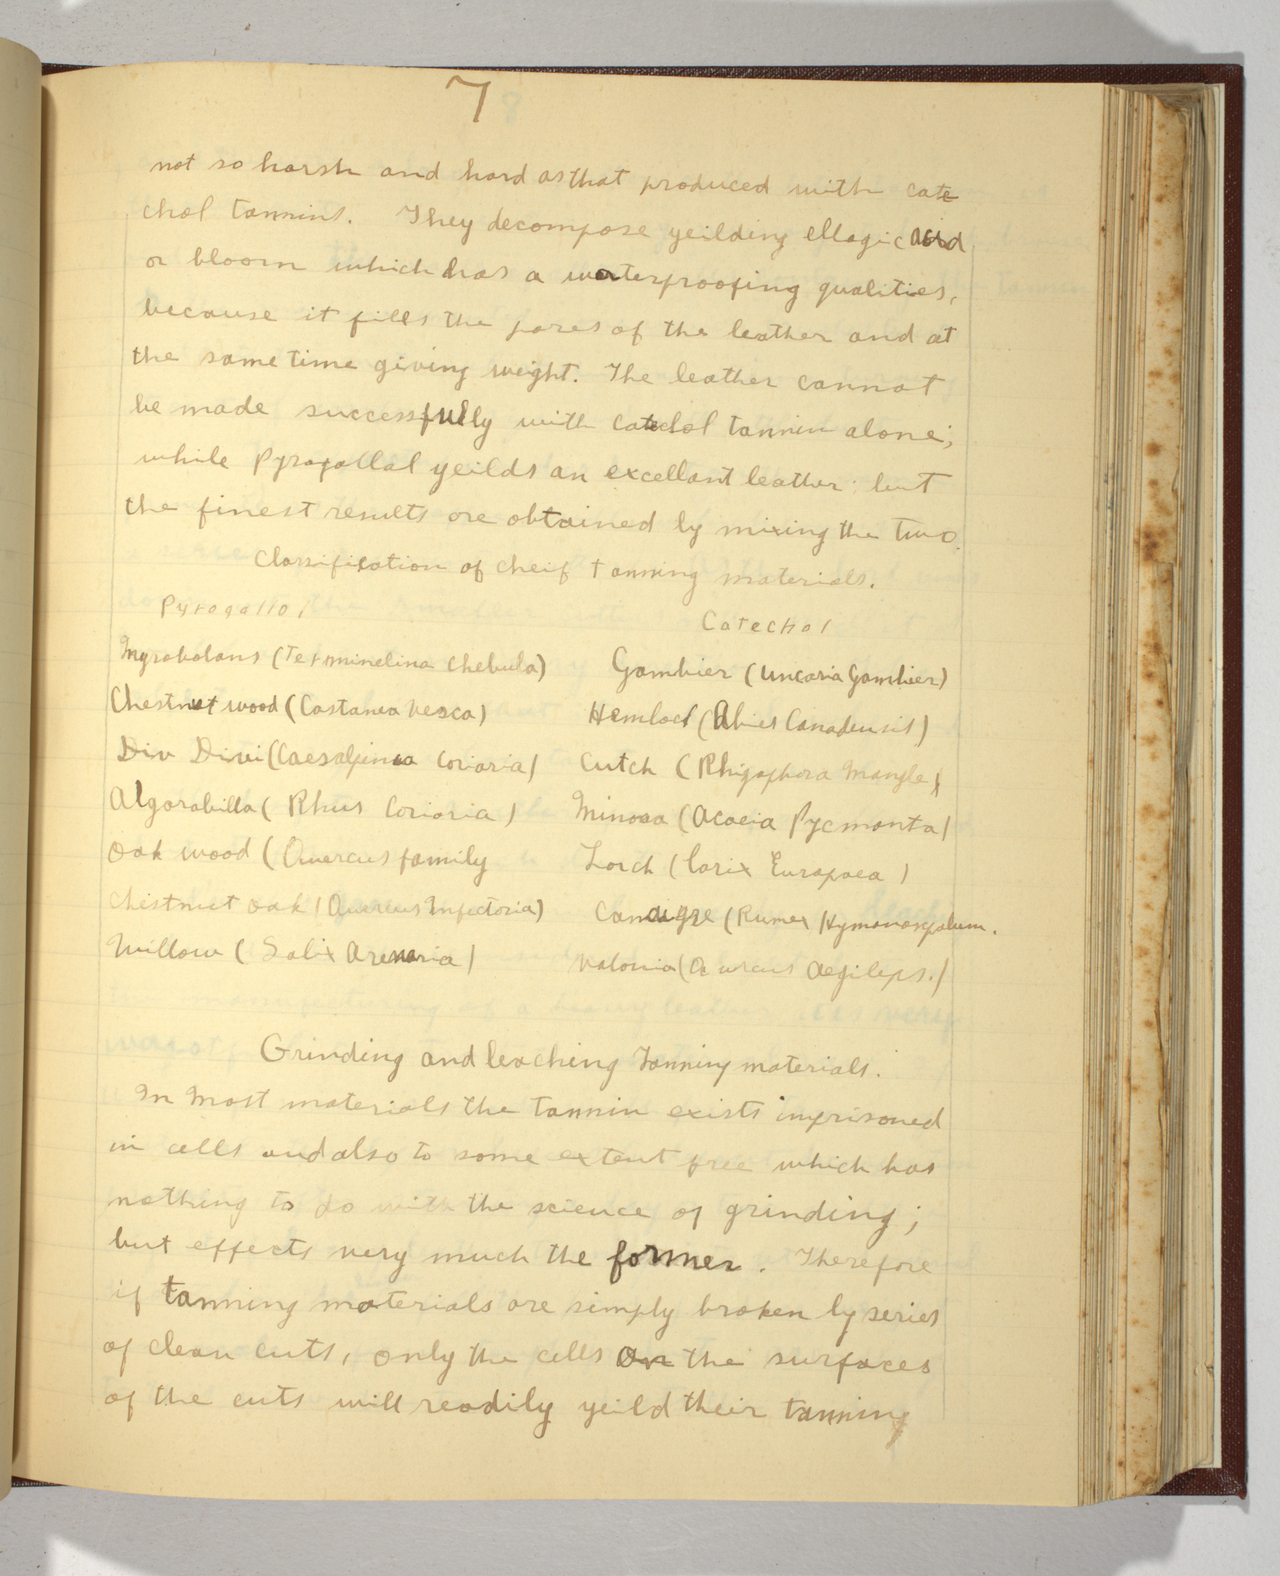 7
not so harsh and hard as that produced with cate
chol tannins. They decompose yeilding ellagic acid
or bloom which has a waterproofing qualities,
because it fills the pores of the leather and at
the same time giving weight. The leather cannot
be made successfully with catechol tannin alone;
while Pyrogallal yeilds an excellant leather; but
the finest results are obtained by mixing the two.
Classification of cheif tanning materials.
Pyrogallol
Catechol
Myrobolans (Terminelina Chebula) Gambier (Uncaria Gambier)
Chestnut wood (Castanea Vesca) Hemlock (Abies Canadensis)
Div Divi (Caesalpinia Coriaria) Cutch (Rhizophora Mangle)
Algorabilla (Rhus Corioria) Mimosa (Acacia Pycmonta)
Oak wood (Quercus family Larch (Larix Europaea)
Chestnut oak (Quercus Infectoria) Canaigre (Rumex Hymonosepalum.
Willow (Salix Arenaria) Valonia (Quercus Aegileps.)
Grinding and leaching Tanning materials.
In Most materials the tannin exists imprisoned
in cells and also to some extent free which has
nothing to do with the science of grinding;
but effects very much the former. Therefore
if tanning materials are simply broken by series
of clean cuts, only the cells on the surfaces
of the cuts will readily yeild their tanning